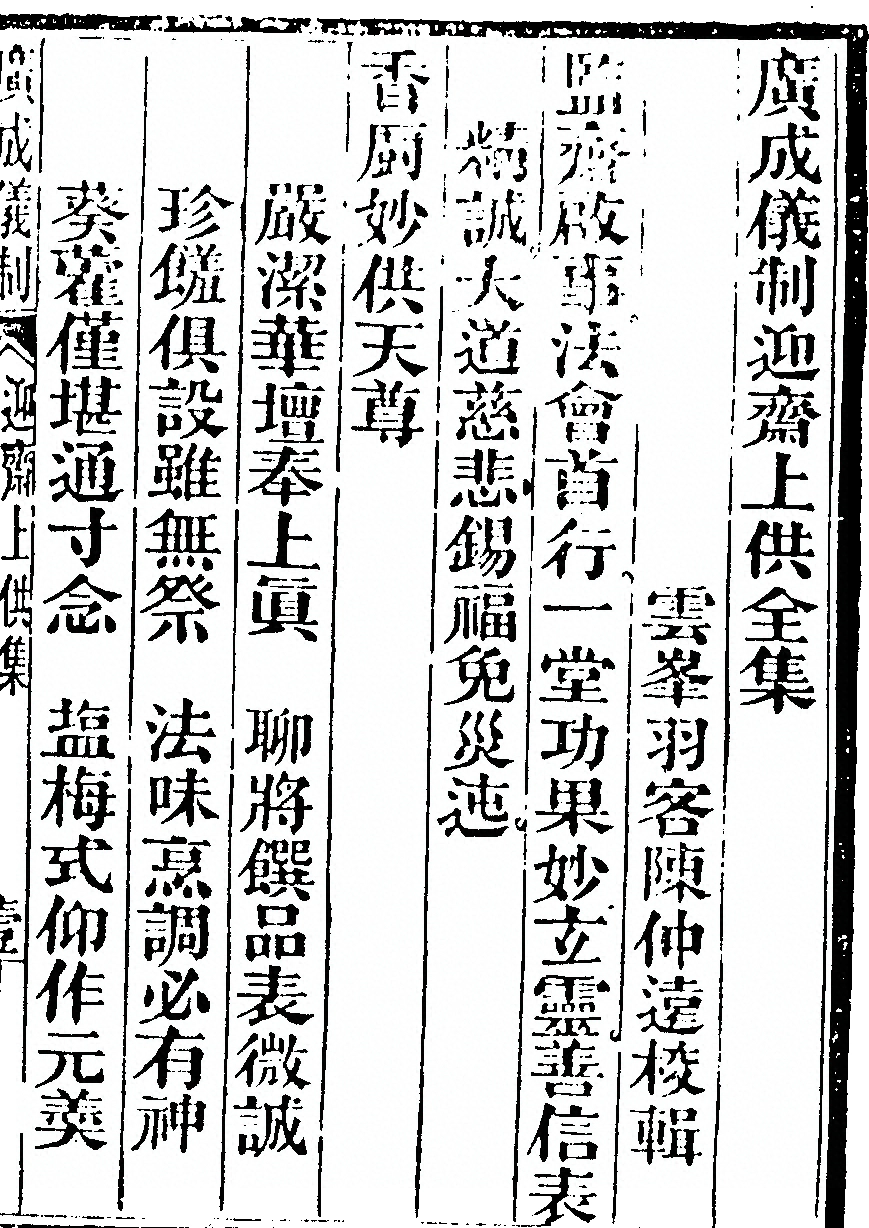 廣成儀制迎齋上供全集
雲峯羽客陳仲遠校輯
監齋啟事法會首行一堂功果妙立靈善信表
精誠大道慈悲錫福免災迍
香厨妙供天尊
嚴潔華壇奉上眞　聊將饌品表微誠
珍饈俱設雖無祭　法味烹調必有神
葵藿僅堪通寸念　塩梅式仰作元羮
廣成儀制　迎齋上供集　壹